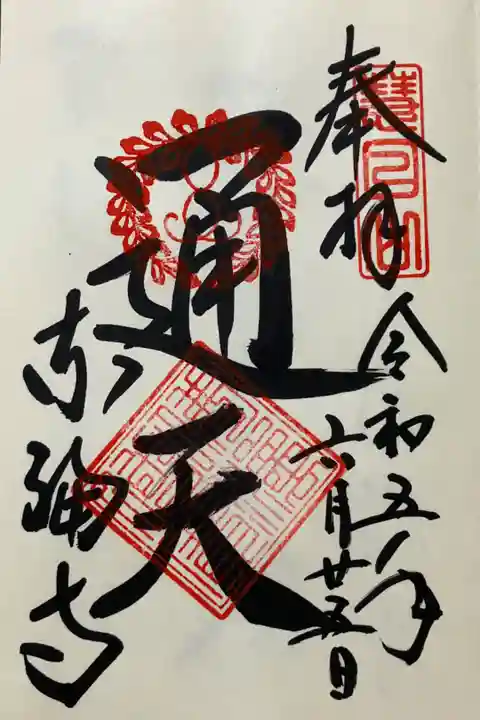 奉拝
令和五年
六月廿五日
通天
東福寺
慧日山